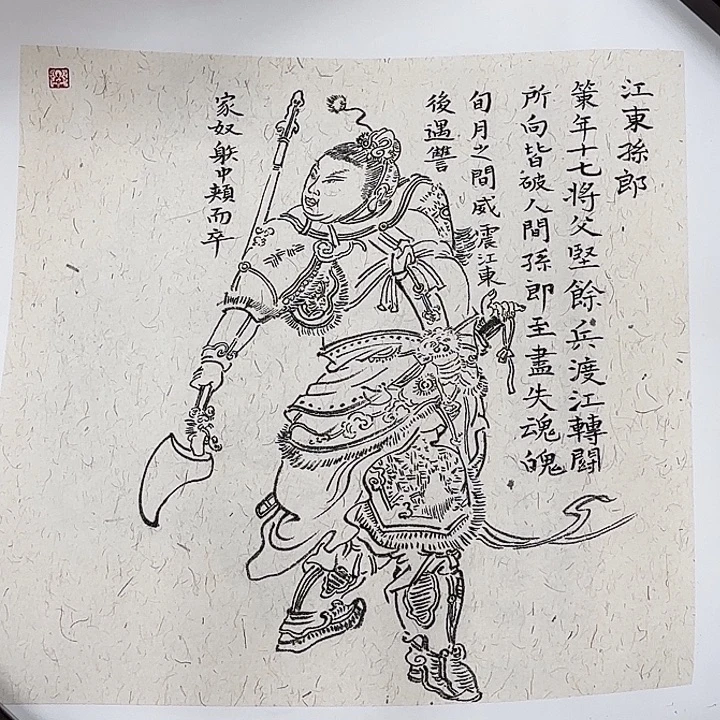 江東孫郎
策年十七將父堅餘兵渡江轉鬪
所向皆破人間孫郎至盡失魂魄
旬月之間威震江東
後遇讐
家奴䠶中頰而卒